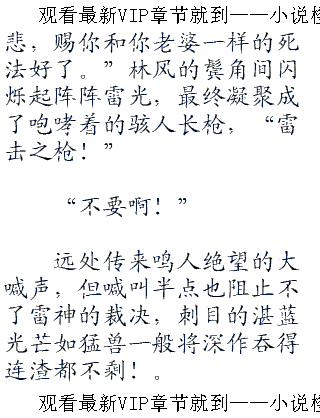 观看最新VIP章节就到——小说
悲，赐你和你老婆一样的死
法好了。”林风的鬓角间闪
烁起阵阵雷光，最终凝聚成
了咆哮着的骇人长枪，“雷
击之枪！”
“不要啊！”
远处传来鸣人绝望的大
喊声，但喊叫半点也阻止不
了雷神的裁决，刺目的湛蓝
光芒如猛兽一般将深作吞得
连渣都不剩！。
观看最新VIP章节就到——小说